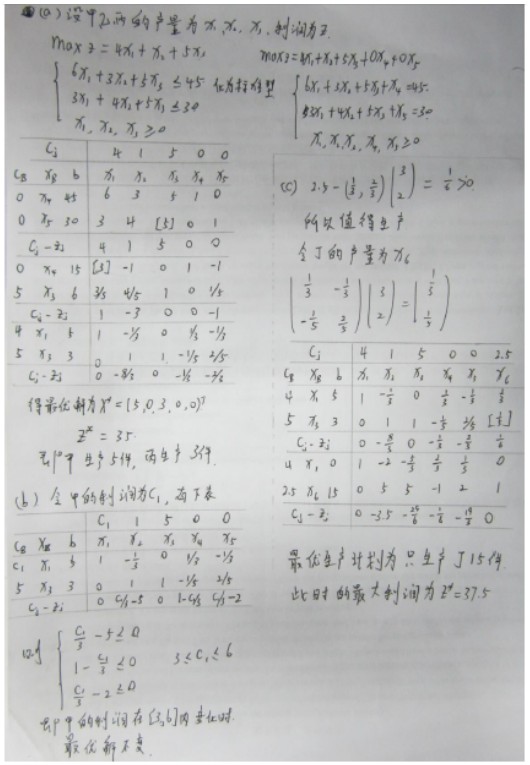 (a) 设甲乙丙的产量为 x₁, x₂, x₃, 利润为 z.
max z = 4x₁ + x₂ + 5x₃
6x₁ + 3x₂ + 5x₃ ≤ 45 化为标准型
3x₁ + 4x₂ + 5x₃ ≤ 30
x₁, x₂, x₃ ≥ 0
max z = 4x₁ + x₂ + 5x₃ + 0x₄ + 0x₅
6x₁ + 3x₂ + 5x₃ + x₄ = 45
3x₁ + 4x₂ + 5x₃ + x₅ = 30
x₁, x₂, x₃, x₄, x₅ ≥ 0
Cj 4 1 5 0 0
CB XB b x₁ x₂ x₃ x₄ x₅
0 x₄ 45 6 3 5 1 0
0 x₅ 30 3 4 [5] 0 1
Cj - zj 4 1 5 0 0
0 x₄ 15 [3] -1 0 1 -1
5 x₃ 6 3/5 4/5 1 0 1/5
Cj - zj 1 -3 0 0 -1
4 x₁ 5 1 -1/3 0 1/3 -1/3
5 x₃ 3 0 1 1 -1/5 2/5
Cj - zj 0 -8/3 0 -1/3 -2/3
得最优解为 X* = (5, 0, 3, 0, 0)ᵀ
Z* = 35.
即甲生产5件, 丙生产3件.
(b) 令甲的利润为C₁, 有下表
C₁ 1 5 0 0
CB XB b x₁ x₂ x₃ x₄ x₅
C₁ x₁ 5 1 -1/3 0 1/3 -1/3
5 x₃ 3 0 1 1 -1/5 2/5
Cj - zj 0 C₁/3-5 0 1-C₁/3 C₁/3-2
C₁/3 - 5 ≤ 0
1 - C₁/3 ≤ 0 3 ≤ C₁ ≤ 6
C₁/3 - 2 ≤ 0
即甲的利润在[3,6]内变化时.
最优解不变.
(c) 2.5 - (1/3, 2/3) (3 2) = 1/6 > 0
所以值得生产
令丁的产量为 x₆
(1/3 -1/3 -1/5 2/5) (3 2) = (1/3 1/5)
Cj 4 1 5 0 0 2.5
CB XB b x₁ x₂ x₃ x₄ x₅ x₆
4 x₁ 5 1 -1/3 0 1/3 -1/3 1/3
5 x₃ 3 0 1 1 -1/5 2/5 [1/5]
Cj - zj 0 -8/3 0 -1/3 -2/3 1/6
4 x₁ 0 1 -2 -5/3 2/3 0
2.5 x₆ 15 0 5 5 -1 2 1
Cj - zj 0 -3.5 -1/6 0
最优生产计划为只生产丁15件.
此时的最大利润为 Z* = 37.5